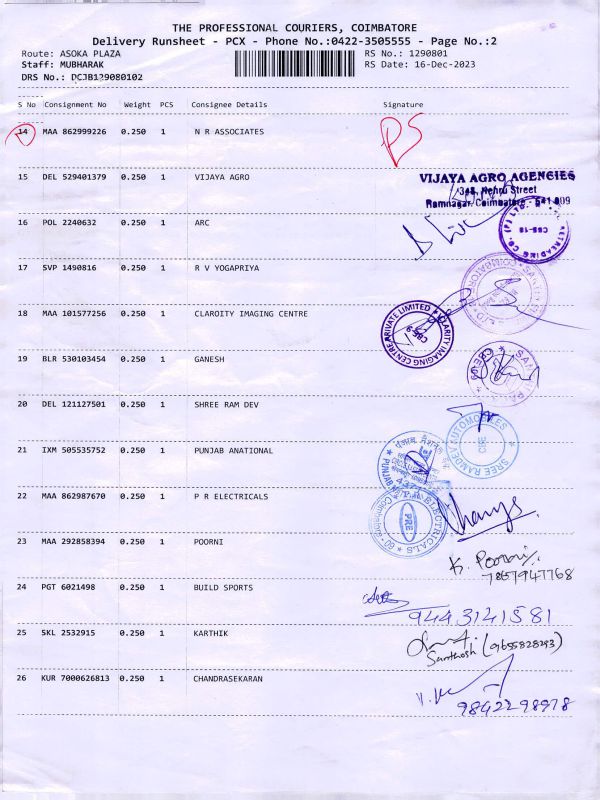 THE PROFESSIONAL COURIERS, COIMBATORE
Delivery Runsheet - PCX - Phone No.:0422-3505555 - Page No.:2
Route: ASOKA PLAZA
RS No.: 1290801
Staff: MUBHARAK
RS Date: 16-Dec-2023
DRS No.: DCJB129080102
S No Consignment No Weight PCS Consignee Details Signature
14 MAA 862999226 0.250 1 N R ASSOCIATES
15 DEL 529401379 0.250 1 VIJAYA AGRO
VIJAYA AGRO AGENCIES
348, Nehru Street
Ramnagar, Coimbatore - 641 009
16 POL 2240632 0.250 1 ARC
RETREADING CO. (P) LTD.
CBS-18
17 SVP 1490816 0.250 1 R V YOGAPRIYA
COIMBATORE
18 MAA 101577256 0.250 1 CLAROITY IMAGING CENTRE
CLARITI IMAGING CENTRE PRIVATE LIMITED
CBE-9
19 BLR 530103454 0.250 1 GANESH
20 DEL 121127501 0.250 1 SHREE RAM DEV
SREE RAMDEV AUTOMOBILES
CBE
21 IXM 505535752 0.250 1 PUNJAB ANATIONAL
पंजाब नैशनल
PUNJAB
22 MAA 862987670 0.250 1 P R ELECTRICALS
ELECTRICALS
PRE
Coimbatore
23 MAA 292858394 0.250 1 POORNI
K. Poorni
7867947768
24 PGT 6021498 0.250 1 BUILD SPORTS
9443141581
25 SKL 2532915 0.250 1 KARTHIK
Santhosh (9655828293)
26 KUR 7000626813 0.250 1 CHANDRASEKARAN
9842298978